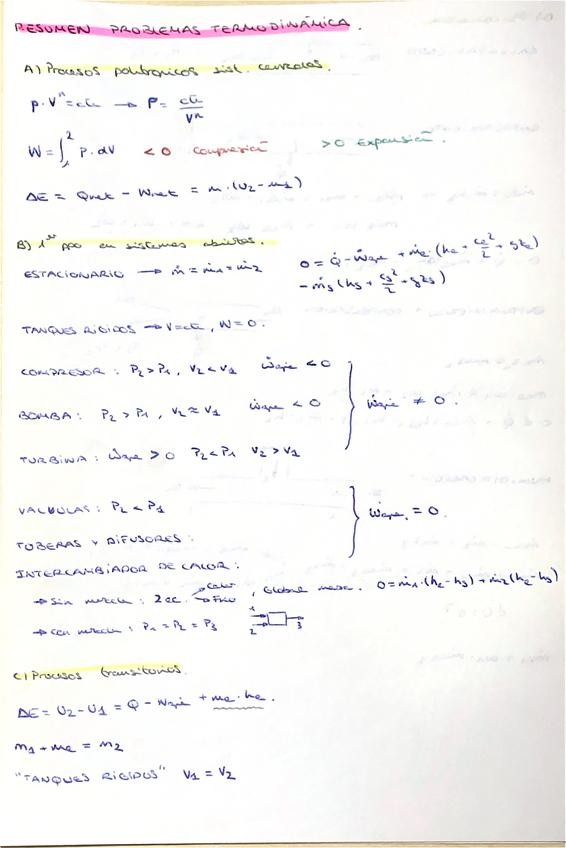 RESUMEN PROBLEMAS TERMODINÁMICA.
A) Procesos politropicos sist. cerrados.
p·Vⁿ = cte → P = cte / Vⁿ
W = ∫₁² P·dV < 0 Compresión > 0 Expansión.
ΔE = Qnet - Wnet = m·(U2 - U1)
B) 1er ppo en sistemas abiertos.
ESTACIONARIO → ṁ = ṁ1 = ṁ2
0 = Q̇ - Ẇeje + ṁe·(he + ce²/2 + gze)
- ṁs(hs + cs²/2 + gzs)
TANQUES RIGIDOS → V = cte, W = 0.
COMPRESOR: P2 > P1, V2 < V1 Ẇeje < 0
BOMBA: P2 > P1, V2 ≈ V1 Ẇeje < 0 Ẇeje ≠ 0.
TURBINA: Ẇeje > 0 P2 < P1 V2 > V1
VALBULAS: P2 < P1
Ẇeje = 0.
TUBERAS Y DIFUSORES:
INTERCAMBIADOR DE CALOR:
→ Sin mezcla: 2 ec. Calor Frio, Global 0 = ṁ1·(he - hs) + ṁ2(he - hs)
→ Con mezcla: P1 = P2 = P3 1 2 3
C) Procesos transitorios.
ΔE = U2 - U1 = Q - Weje + me·he.
m1 + me = m2
"TANQUES RIGIDOS" V1 = V2